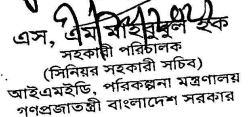 এস, এম মাহবুবুল হক
সহকারী পরিচালক
(সিনিয়র সহকারী সচিব)
আইএমইডি, পরিকল্পনা মন্ত্রণালয়
গণপ্রজাতন্ত্রী বাংলাদেশ সরকার